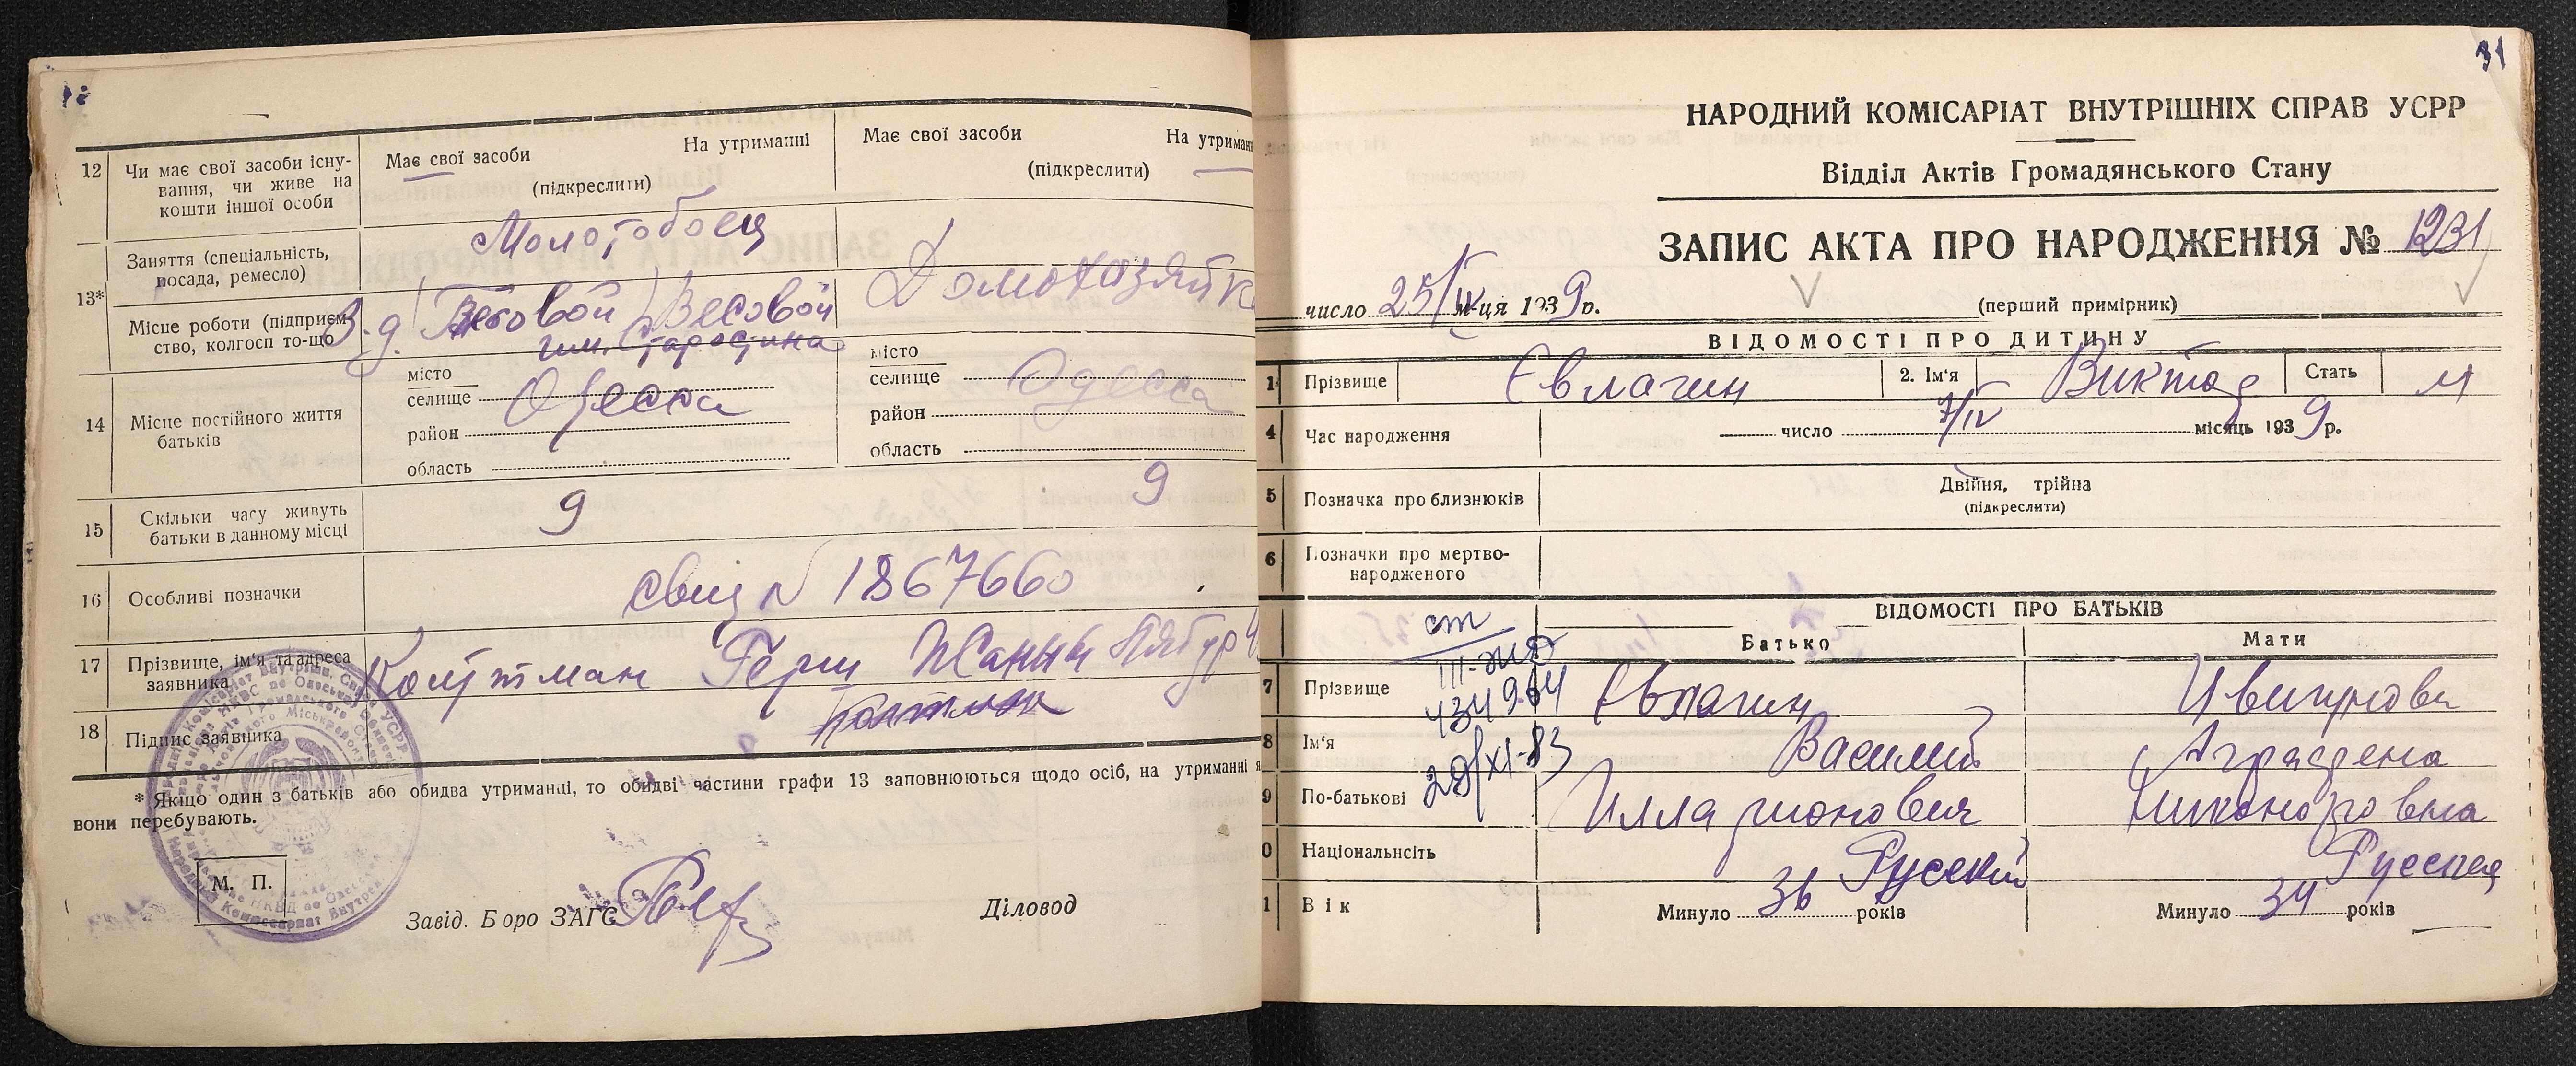 12 Чи має свої засоби існу-
вання, чи живе на
кошти іншої особи
Має свої засоби На утриманні
(підкреслити)
Має свої засоби На утриман
(підкреслити)
13* Заняття (спеціальність,
посада, ремесло)
Молотобоец
Домохазяйка
Місце роботи (підприєм-
ство, колгосп то-що
З-д. (Весовой) Весовой
им. Старостина
14 Місце постійного життя
батьків
місто
селище Одесса
район
область
місто
селище Одесса
район
область
15 Скільки часу живуть
батьки в данному місці
9 9
16 Особливі позначки
свид N 1867660
17 Прізвище, ім'я та адреса
заявника
Койтман Герш Жанны Лябур
18 Підпис заявника
* Якщо один з батьків або обидва утриманці, то обидві частини графи 13 заповнюються щодо осіб, на утриманні я
вони перебувають.
М. П.
Завід. Бюро ЗАГС
Діловод
31
НАРОДНИЙ КОМІСАРІАТ ВНУТРІШНІХ СПРАВ УСРР
Відділ Актів Громадянського Стану
ЗАПИС АКТА ПРО НАРОДЖЕННЯ № 1231
число 25/IV м-ця 1939р.
(перший примірник)
ВІДОМОСТІ ПРО ДИТИНУ
1 Прізвище Євлагин 2. Ім'я Виктор Стать М
4 Час народження число 7/IV місяць 1939р.
5 Позначка про близнюків
Двійня, трійна
(підкреслити)
6 Позначки про мертво-
народженого
ВІДОМОСТІ ПРО БАТЬКІВ
Батько Мати
ст
III-ЖД
434964
29/XI-83
7 Прізвище Євлагин
8 Ім'я Василий Аграфена
9 По-батькові Илларионович Никоноровна
0 Національнсіть Русский Русская
1 Вік Минуло 36 років Минуло 34 років